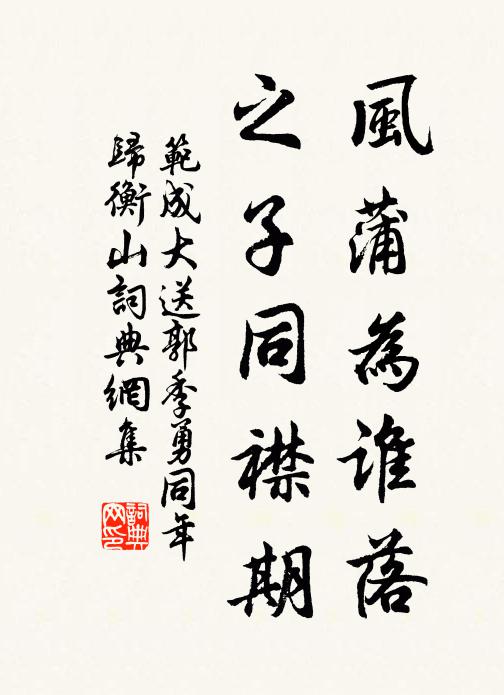 風蒲為誰落
之子同襟期
範成大送郭季勇同年
歸衡山詞典網集
詞典网印